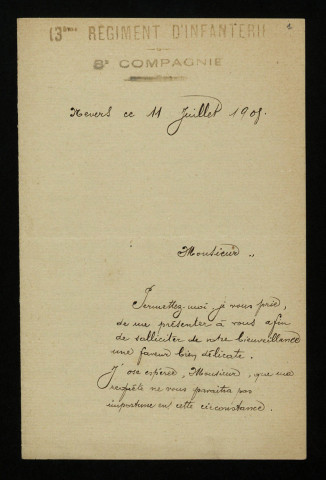 1
13ème REGIMENT D'INFANTERIE
8e COMPAGNIE
Nevers ce 11 Juillet 1905.
Monsieur „
Permettez-moi, je vous prie,
de me présenter à vous afin
de solliciter de votre bienveillance
une faveur bien délicate.
J'ose espérer, Monsieur, que ma
requête ne vous paraîtra pas
importune en cette circonstance.